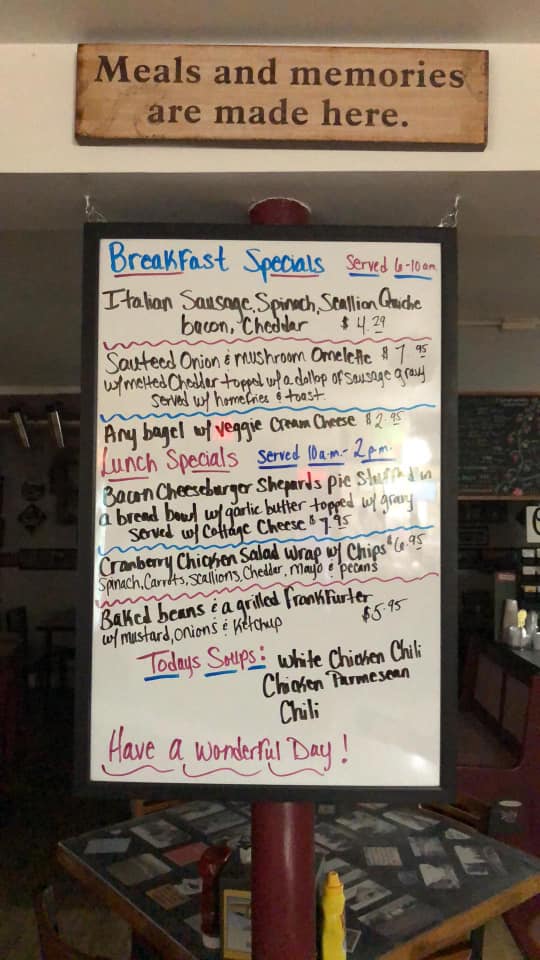 Meals and memories
are made here.
Breakfast Specials Served 6-10am
Italian Sausage, Spinach, Scallion Quiche
bacon, Cheddar $4.29
Sauteed Onion & mushroom Omelette $7.95
w/melted Cheddar topped w/ a dollop of sausage gravy
served w/ homefries & toast.
Any bagel w/ veggie Cream Cheese $2.95
Lunch Specials Served 10a.m.- 2pm.
Bacon Cheeseburger Shepards pie Stuffed in
a bread bowl w/ garlic butter topped w/ gravy
served w/ Cottage Cheese $7.95
Cranberry Chicken Salad Wrap w/ Chips $6.95
Spinach, Carrots, Scallions, Cheddar, mayo & pecans
Baked beans & a grilled Frankfurter
w/ mustard, onions & Ketchup $5.95
Todays Soups: White Chicken Chili
Chicken Parmesean
Chili
Have a wonderful Day!